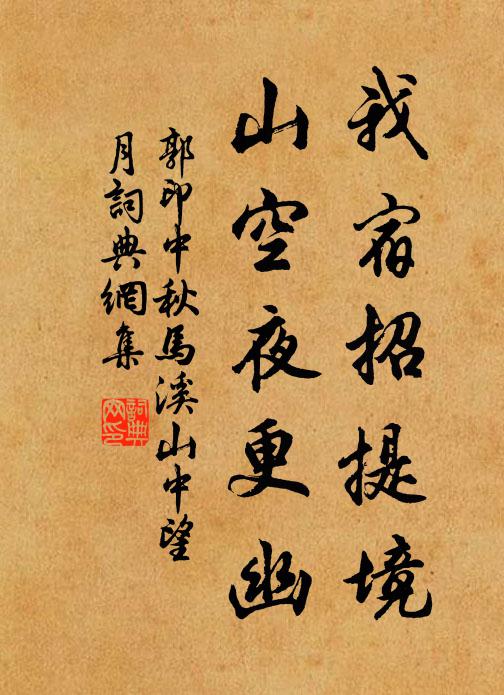 我宿招提境
山空夜更幽
郭印中秋馬溪山中望
月詞典網集
詞典
网印